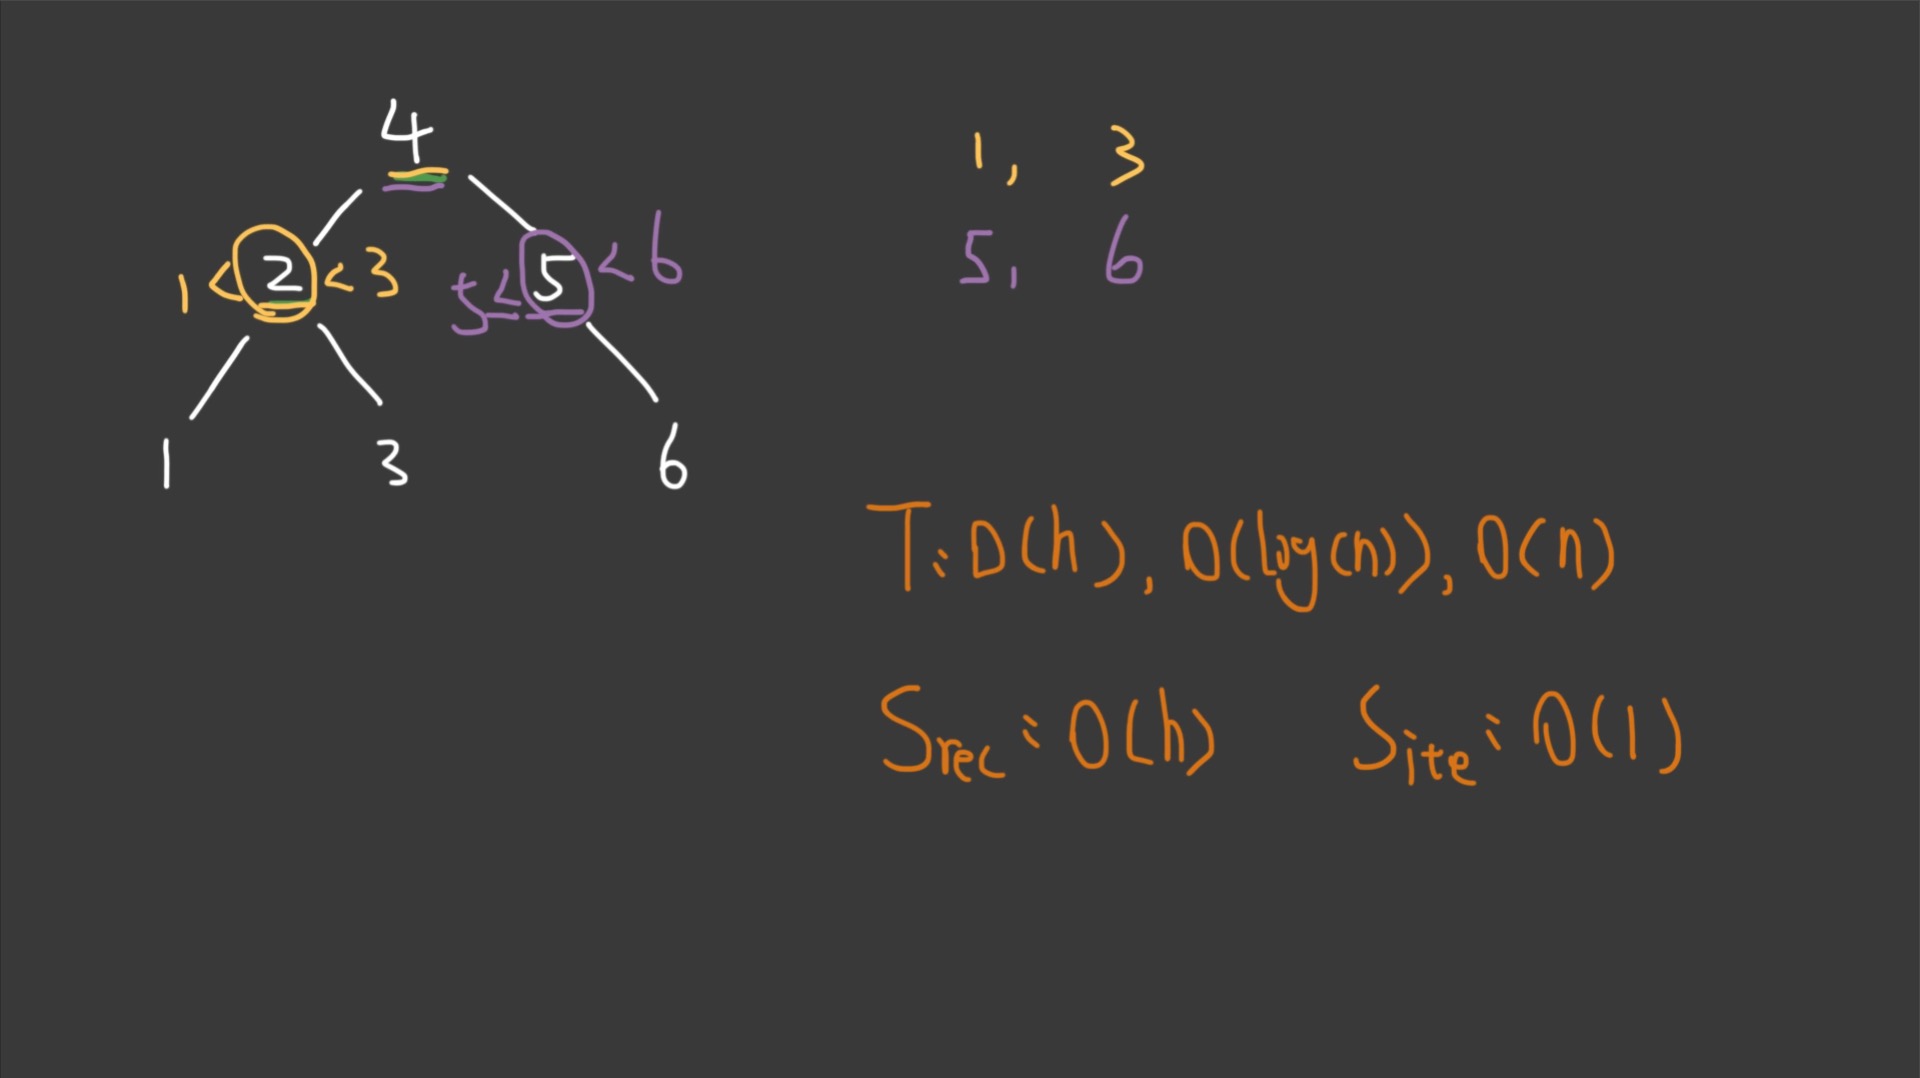 4
1 < 2 < 3
5 ≤ 5 < 6
1 3 6
1, 3
5, 6
T: O(h), O(log(n)), O(n)
Srec: O(h) Site: O(1)